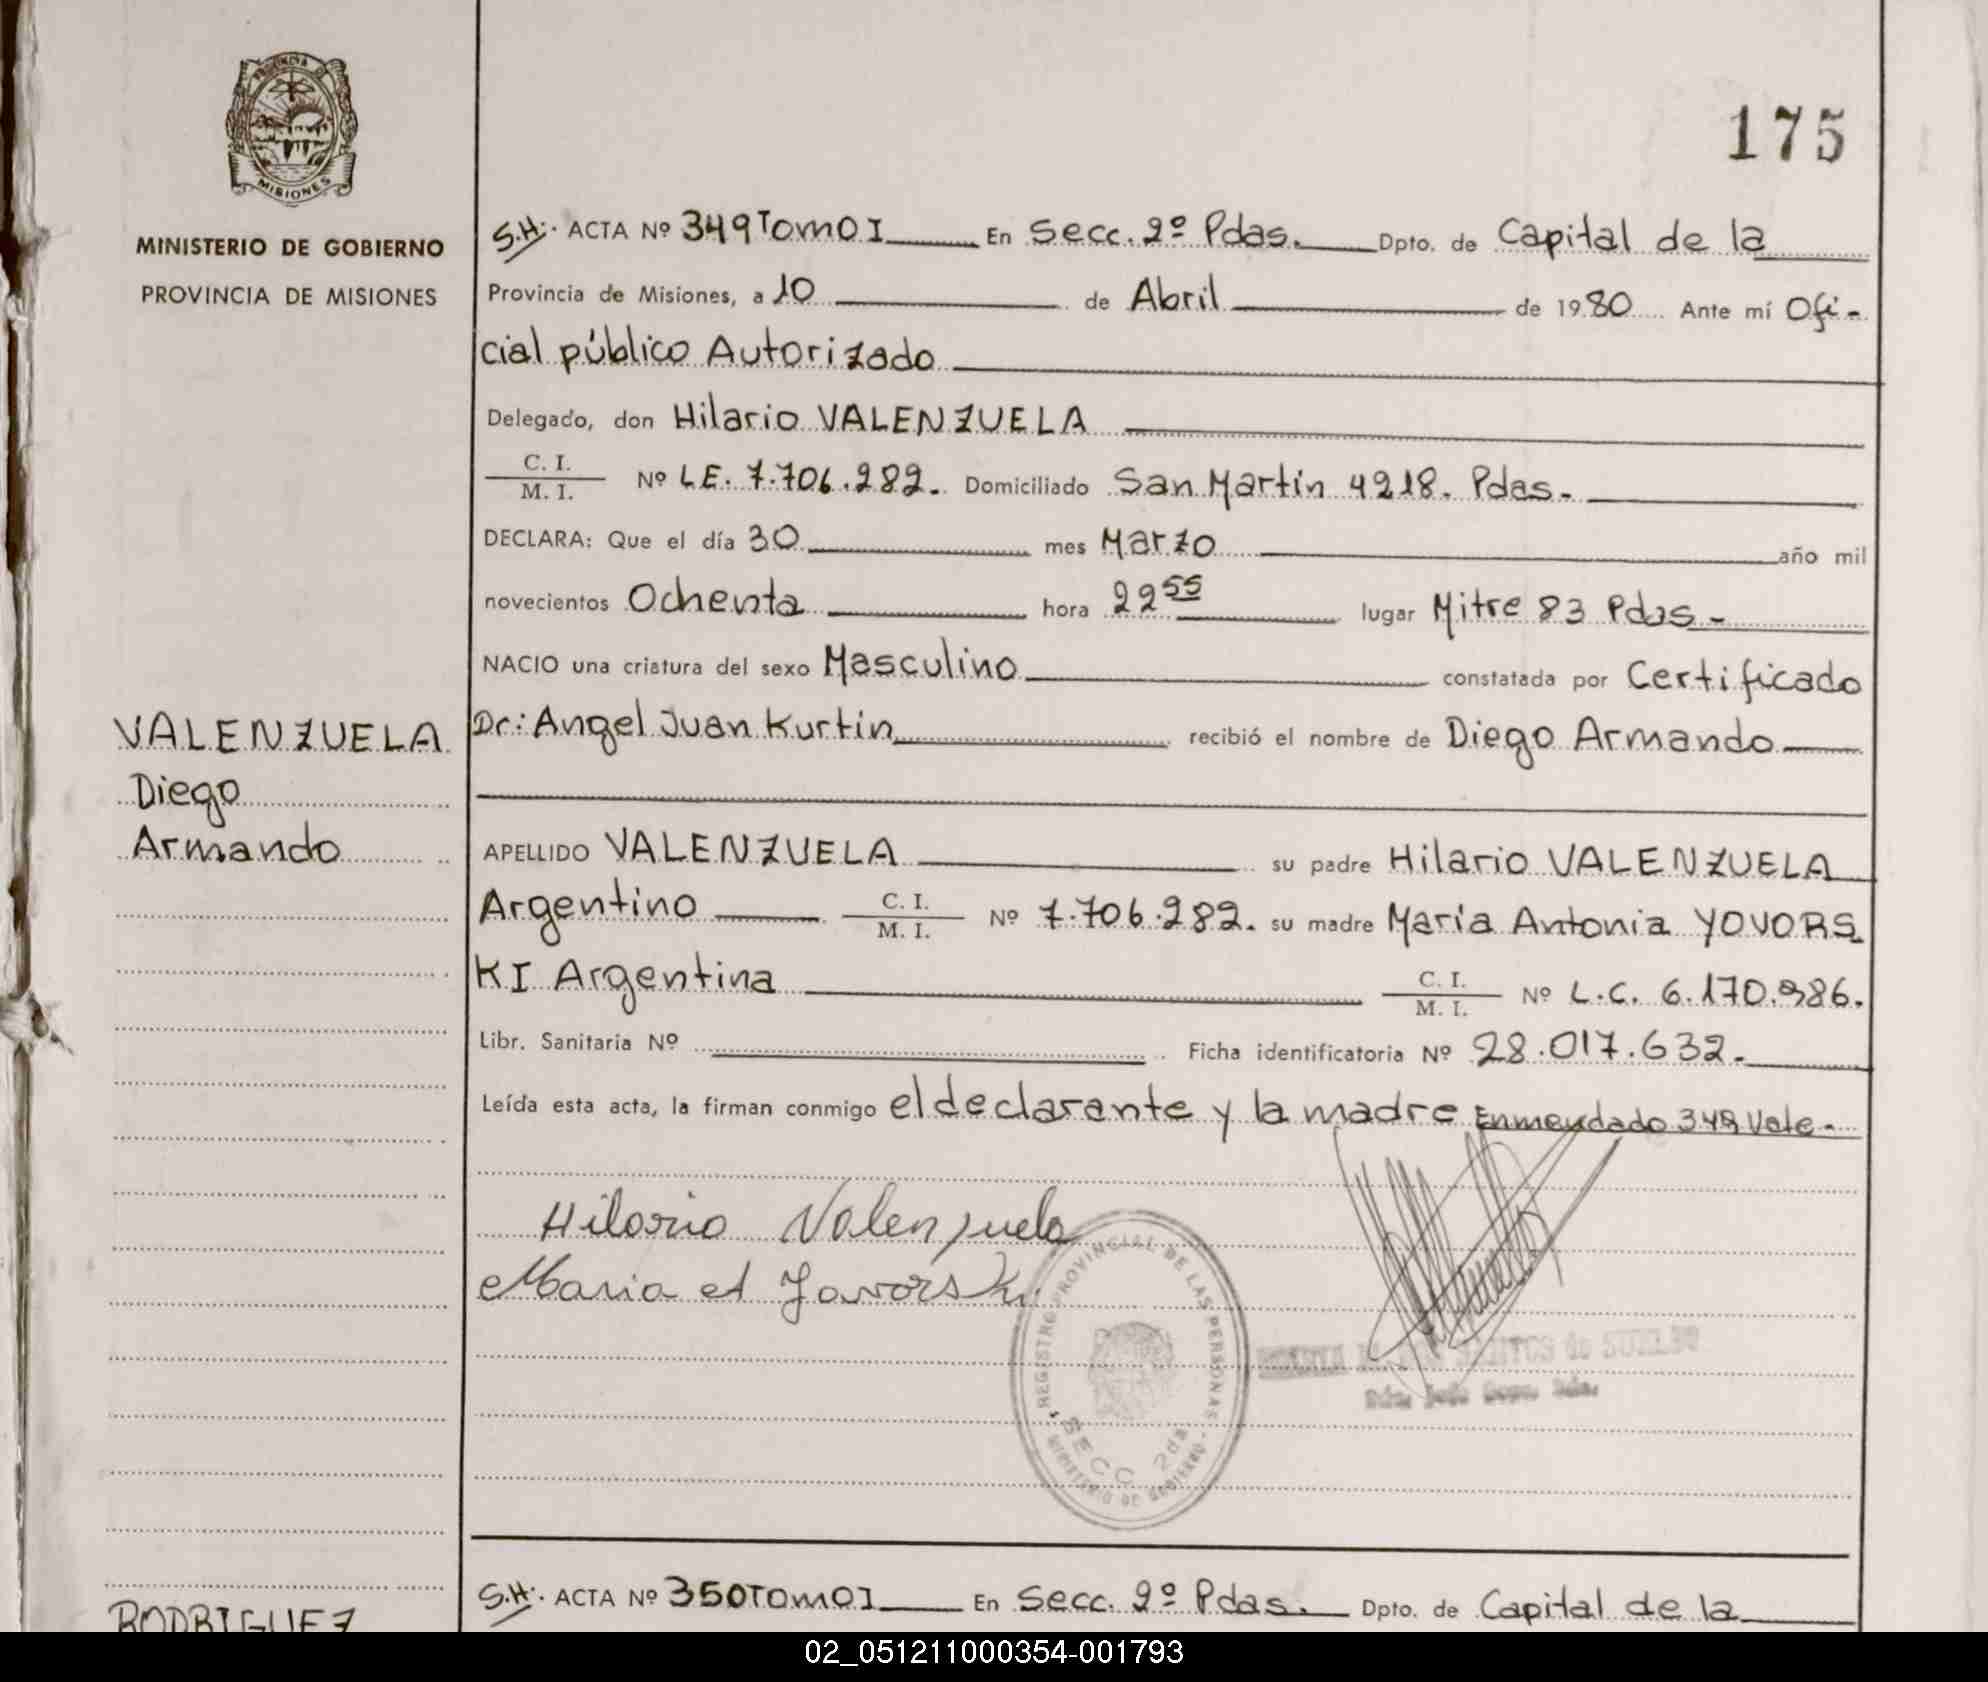 PROVINCIA DE
MISIONES
MINISTERIO DE GOBIERNO
PROVINCIA DE MISIONES
175
S.H. ACTA Nº 349 Tomo I En Secc. 2º Pdas. Dpto. de Capital de la
Provincia de Misiones, a 10 de Abril de 1980 Ante mí Ofi-
cial público Autorizado
Delegado, don Hilario VALENZUELA
C. I. / M. I. Nº LE. 7.706.282. Domiciliado San Martin 4218. Pdas.-
DECLARA: Que el día 30 mes Marzo año mil
novecientos Ochenta hora 22 55 lugar Mitre 83 Pdas.-
NACIO una criatura del sexo Masculino constatada por Certificado
Dr: Angel Juan Kurtin recibió el nombre de Diego Armando
VALENZUELA
Diego
Armando
APELLIDO VALENZUELA su padre Hilario VALENZUELA
Argentino C. I. / M. I. Nº 7.706.282. su madre María Antonia YOVORS
KI Argentina C. I. / M. I. Nº L.C. 6.170.986.
Libr. Sanitaria Nº Ficha identificatoria Nº 28.017.632.
Leída esta acta, la firman conmigo el declarante y la madre Enmendado 349 Vale.-
Hilario Valenzuela
Maria A Javorski
REGISTRO PROVINCIAL DE LAS PERSONAS
SECC 2da
MINISTERIO DE GOBIERNO
SANTOS de
S.H. ACTA Nº 350 Tomo I En Secc. 2º Pdas. Dpto. de Capital de la
RODRIGUEZ
02_051211000354-001793